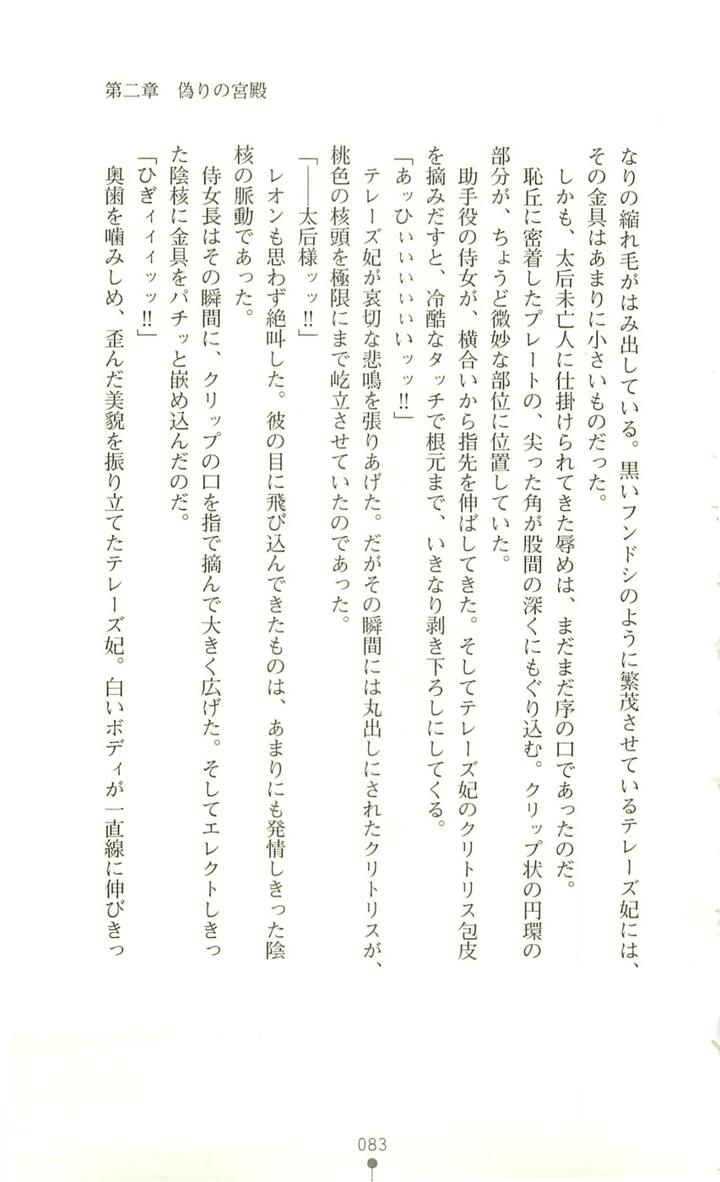 第二章　偽りの宮殿
なりの縮れ毛がはみ出している。黒いフンドシのように繁茂させているテレーズ妃には、
その金具はあまりに小さいものだった。
しかも、太后未亡人に仕掛けられてきた辱めは、まだまだ序の口であったのだ。
恥丘に密着したプレートの、尖った角が股間の深くにもぐり込む。クリップ状の円環の
部分が、ちょうど微妙な部位に位置していた。
助手役の侍女が、横合いから指先を伸ばしてきた。そしてテレーズ妃のクリトリス包皮
を摘みだすと、冷酷なタッチで根元まで、いきなり剥き下ろしにしてくる。
「あッひぃぃぃぃぃいッッ‼」
テレーズ妃が哀切な悲鳴を張りあげた。だがその瞬間には丸出しにされたクリトリスが、
桃色の核頭を極限にまで屹立させていたのであった。
「――太后様ッッ‼」
レオンも思わず絶叫した。彼の目に飛び込んできたものは、あまりにも発情しきった陰
核の脈動であった。
侍女長はその瞬間に、クリップの口を指で摘んで大きく広げた。そしてエレクトしきっ
た陰核に金具をパチッと嵌め込んだのだ。
「ひぎィィィッッ‼」
奥歯を噛みしめ、歪んだ美貌を振り立てたテレーズ妃。白いボディが一直線に伸びきっ
083